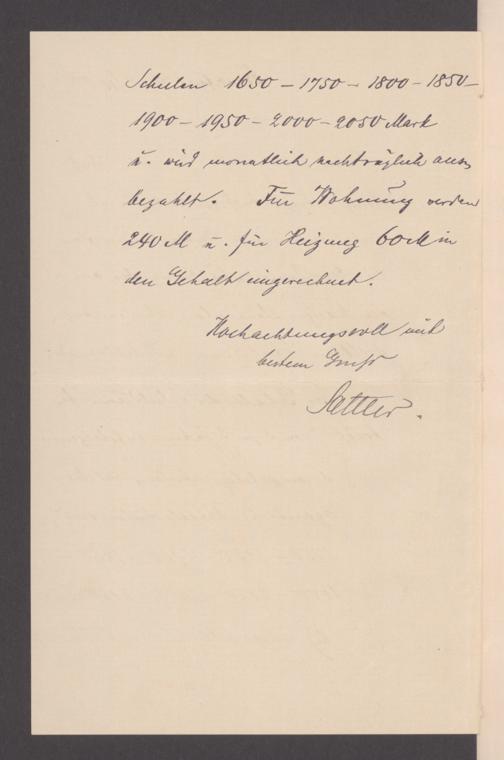 Schulen 1650 – 1750 – 1800 – 1850 –
1900 – 1950 – 2000 – 2050 Mark
u. wird monatlich nachträglich aus,
bezahlt. Für Wohnung werden
240 M u. für Heizung 60 M in
den Gehalt eingerechnet.
Hochachtungsvoll mit
bestem Gruß
Sattler.